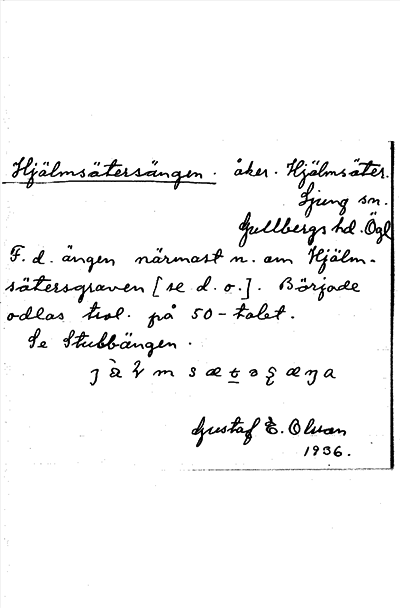 Hjälmsätersängen. åker. Hjälmsäter.
Ljung sn.
Gullbergs hd. Ögl
F. d. ängen närmast n. om Hjälm-
sätersgraven [se d. o.]. Började
odlas trol. på 50-talet.
Se Stubbängen.
Gustaf E. Olsson
1936.